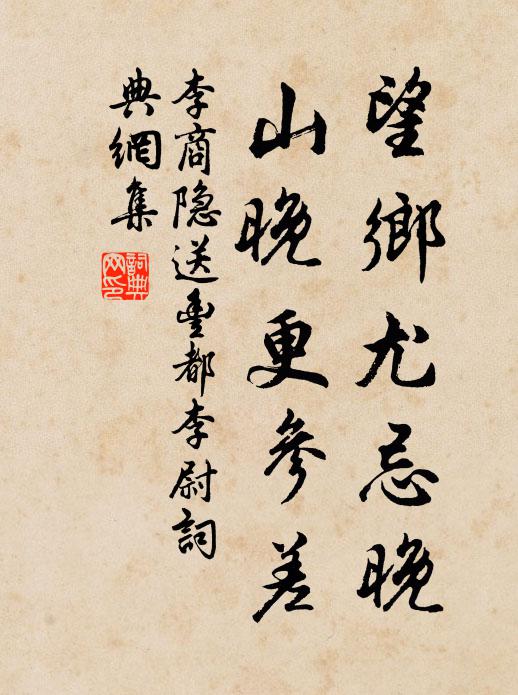 望鄉尤忌晚
山晚更參差
李商隐送豐都李尉詞
典網集
詞典
网印